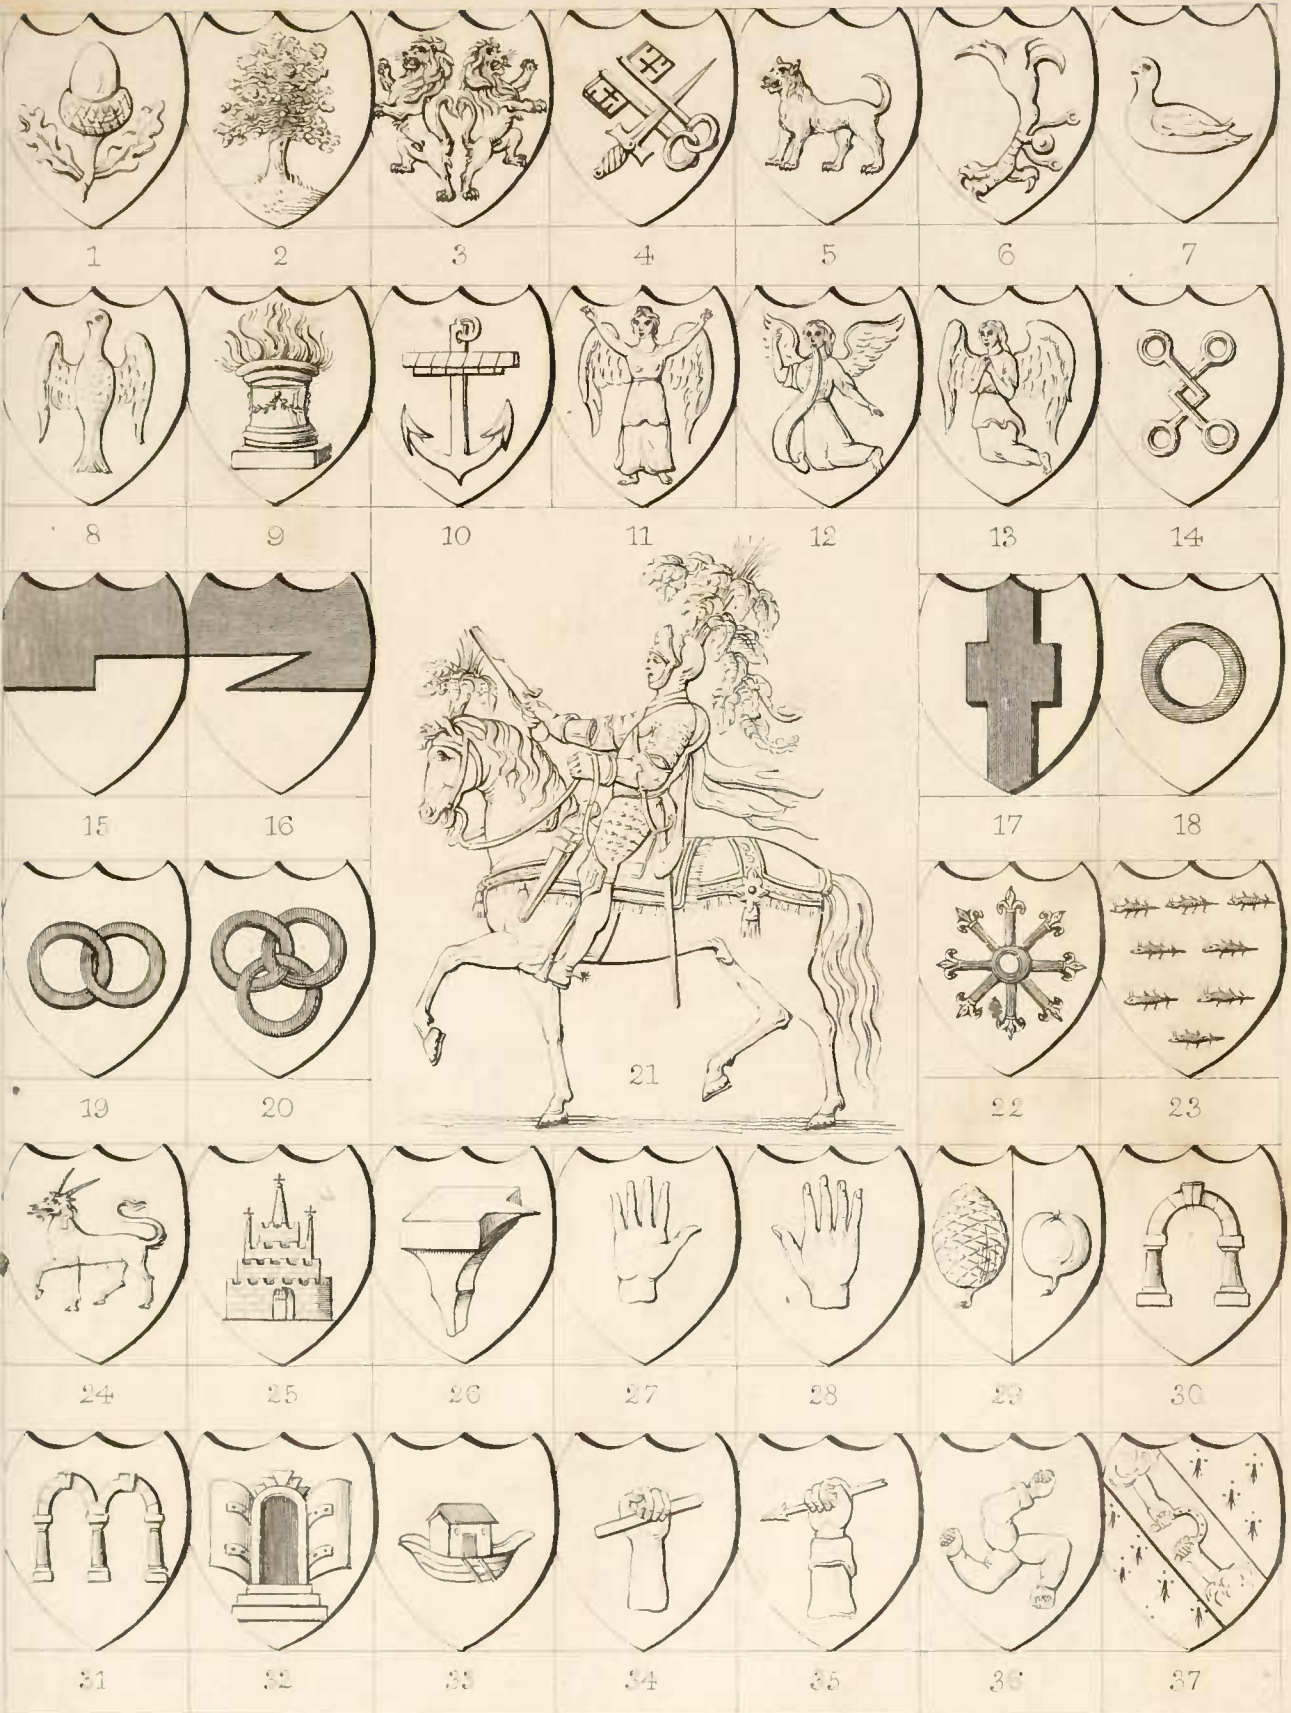 1 2 3 4 5 6 7
8 9 10 11 12 13 14
15 16 17 18
19 20 21 22 23
24 25 26 27 28 29 30
31 32 33 34 35 36 37